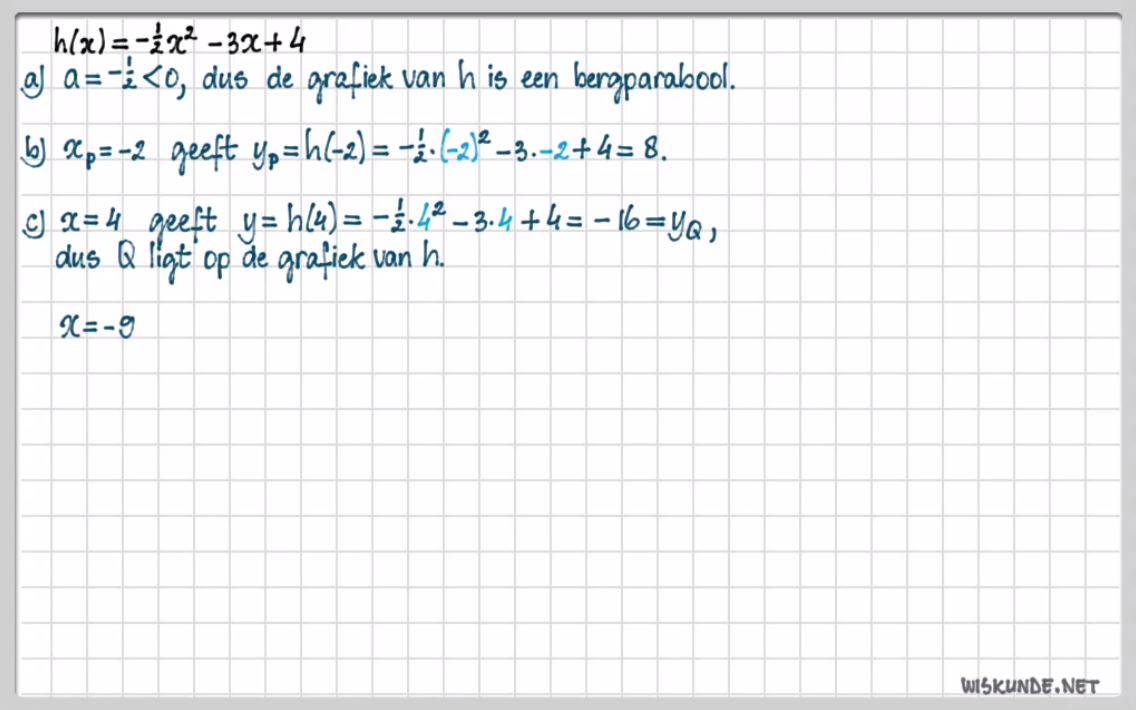 h(x) = -½x² - 3x + 4
a) a = -½ < 0, dus de grafiek van h is een bergparabool.
b) xₚ = -2 geeft yₚ = h(-2) = -½·(-2)² - 3·-2 + 4 = 8.
c) x = 4 geeft y = h(4) = -½·4² - 3·4 + 4 = -16 = y_Q,
dus Q ligt op de grafiek van h.
x = -9
WISKUNDE.NET